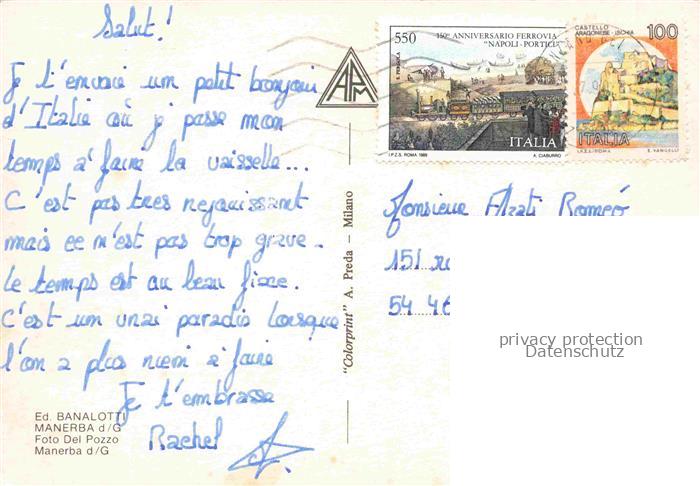 Salut!
Je t'envoie um petit bonjour
d'Italie où je passe mon
temps à faire la vaisselle...
C'est pas tres rejouissant
mais ce n'est pas trop grave.
le temps est au beau fixe.
C'est um vrai paradis lorsque
l'on a plus rien à faire
Je t'embrasse
Rachel
Ed. BANALOTTI
MANERBA d/G
Foto Del Pozzo
Manerba d/G
APM
"Colorprint" A. Preda – Milano
550
150° ANNIVERSARIO FERROVIA
"NAPOLI - PORTICI"
ITALIA
I.P.Z.S. ROMA 1989
A. CIABURRO
CASTELLO
ARAGONESE - ISCHIA
100
ITALIA
I.P.Z.S. - ROMA
E. VANGELLI
Monsieur Alzati Roméo
151
54 46
privacy protection
Datenschutz